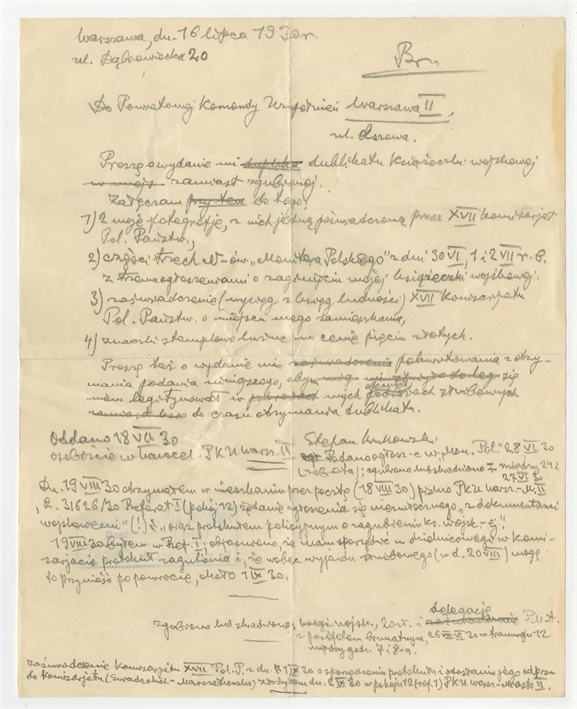 Warszawa, dn. 16 lipca 1930 r.
ul. Dąbrowiecka 20
Do Powiatowej Komendy Uzupełnień Warszawa II,
ul.
Proszę o wydanie mi duplika dublikatu książeczki wojskowej
zamiast zgubionej.
Załączam przy tem do tego:
1) 2 moje fotografje, z nich jedną poświadczoną przez XVII Komisarjat
Pol. Państw.,
2) części trzech N-ów „Monitora Polskiego" z dni 30 VI, 1 i 2 VII r. b.
z trzema ogłoszeniami o zaginięciu mojej książeczki wojskowej.
3) zaświadczenie (wyciąg z ksiąg ludności) XVII Komisarjatu
Pol. Państw. o miejscu mego zamieszkania,
4) znaczki stemplowe luźne na cenę pięciu złotych.
Proszę też o wydanie mi zaświadczenia pokwitowania z otrzy-
mania podania niniejszego, abym się
mógł legitymować w mych podróżach służbowych
do czasu otrzymania dublikatu.
Oddano 18 VII 30 Stefan
osobiście w kancel. PKU Warsz. II Podano ogłosz-e w „Mon. Pol." 28 VI 30
(sobota); zgubiono lub skradziono między 24 i
27 VI 30
Dn. 19 VIII 30 otrzymałem w mieszkaniu przez pocztę (18 VIII 30) pismo PKU Warsz.-M. II
L. 31626/30 Referat I (pokój 12) żądanie zgłoszenia się niezwłocznego „z dokumentami
wojskowemi" (!) i „oraz protokułem policyjnym o zagubieniu ks. wojsk-ej"
19 VIII 30 byłem w Ref. I; objaśniono, że mam sporządzić u dzielnicowego w komi-
sarjacie protokuł zagubienia i, że wobec wyjazdu służbowego (w d. 20 VIII) mogę
to przynieść po powrocie, około 1 IX 30.
delegację
zgubiono lub skradziono; książ. wojsk., 20 zł. i zaświadczenie P.U.A.
z portfelem brunatnym, 26 VI 30 w tramwaju 12
między godz. 7 i 8-ą.
Zaświadczenie Komisarjatu XVII Pol. P. z dn. 1 IX 30 o sporządzeniu protokułu i odesłaniu jego odpisu
do Komisarjatu (Marszałkowska) złożyłem dn. 2 IX 30 w pokoju 12 (ref. 1) PKU Warsz.-Miasto II.